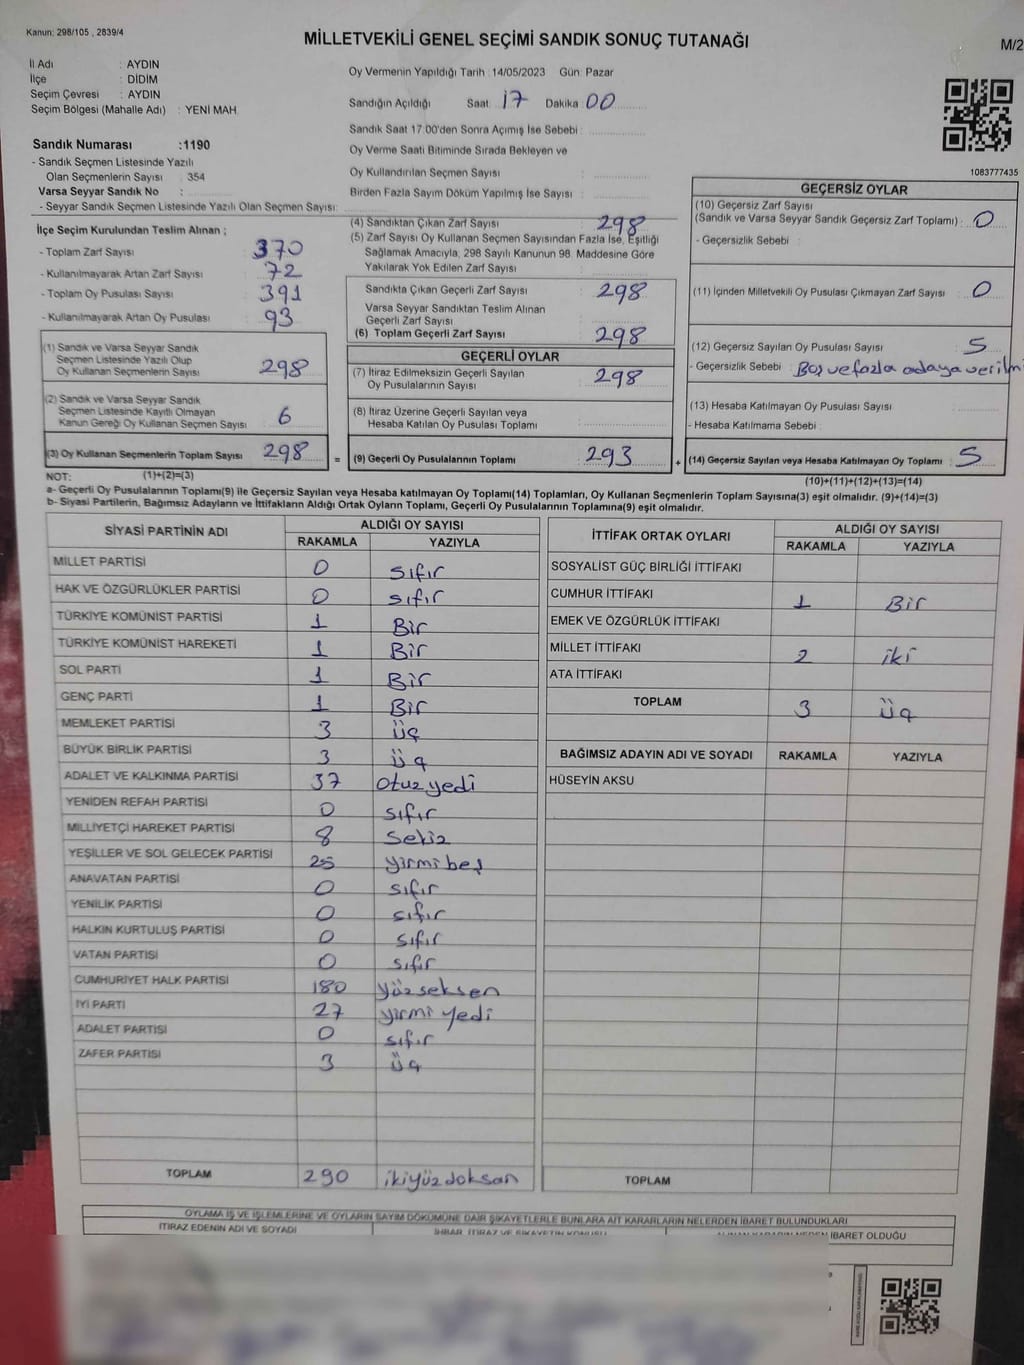 Kanun: 298/105 , 2839/4
MİLLETVEKİLİ GENEL SEÇİMİ SANDIK SONUÇ TUTANAĞI
M/2
İl Adı : AYDIN
İlçe : DİDİM
Seçim Çevresi : AYDIN
Seçim Bölgesi (Mahalle Adı) : YENİ MAH.
Oy Vermenin Yapıldığı Tarih :14/05/2023 Gün: Pazar
Sandığın Açıldığı Saat: 17 Dakika 00
Sandık Saat 17.00'den Sonra Açımış İse Sebebi :
Oy Verme Saati Bitiminde Sırada Bekleyen ve
Oy Kullandırılan Seçmen Sayısı :
Birden Fazla Sayım Döküm Yapılmış İse Sayısı :
Sandık Numarası :1190
- Sandık Seçmen Listesinde Yazılı
Olan Seçmenlerin Sayısı : 354
Varsa Seyyar Sandık No :
- Seyyar Sandık Seçmen Listesinde Yazılı Olan Seçmen Sayısı:
1083777435
İlçe Seçim Kurulundan Teslim Alınan ;
- Toplam Zarf Sayısı : 370
- Kullanılmayarak Artan Zarf Sayısı : 72
- Toplam Oy Pusulası Sayısı : 391
- Kullanılmayarak Artan Oy Pusulası : 93
(1) Sandık ve Varsa Seyyar Sandık
Seçmen Listesinde Yazılı Olup
Oy Kullanan Seçmenlerin Sayısı : 298
(2) Sandık ve Varsa Seyyar Sandık
Seçmen Listesinde Kayıtlı Olmayan
Kanun Gereği Oy Kullanan Seçmen Sayısı : 6
(3) Oy Kullanan Seçmenlerin Toplam Sayısı : 298 =
(1)+(2)=(3)
(4) Sandıktan Çıkan Zarf Sayısı : 298
(5) Zarf Sayısı Oy Kullanan Seçmen Sayısından Fazla İse, Eşitliği
Sağlamak Amacıyla, 298 Sayılı Kanunun 98. Maddesine Göre
Yakılarak Yok Edilen Zarf Sayısı :
Sandıkta Çıkan Geçerli Zarf Sayısı : 298
Varsa Seyyar Sandıktan Teslim Alınan
Geçerli Zarf Sayısı :
(6) Toplam Geçerli Zarf Sayısı : 298
GEÇERLİ OYLAR
(7) İtiraz Edilmeksizin Geçerli Sayılan
Oy Pusulalarının Sayısı : 298
(8) İtiraz Üzerine Geçerli Sayılan veya
Hesaba Katılan Oy Pusulaları Toplamı :
(9) Geçerli Oy Pusulalarının Toplamı : 293 +
GEÇERSİZ OYLAR
(10) Geçersiz Zarf Sayısı
(Sandık ve Varsa Seyyar Sandık Geçersiz Zarf Toplamı) : 0
- Geçersizlik Sebebi :
(11) İçinden Milletvekili Oy Pusulası Çıkmayan Zarf Sayısı : 0
(12) Geçersiz Sayılan Oy Pusulası Sayısı : 5
- Geçersizlik Sebebi : Boş ve fazla adaya verilmi
(13) Hesaba Katılmayan Oy Pusulası Sayısı :
- Hesaba Katılmama Sebebi :
(14) Geçersiz Sayılan veya Hesaba Katılmayan Oy Toplamı : 5
(10)+(11)+(12)+(13)=(14)
NOT:
a- Geçerli Oy Pusulalarının Toplamı(9) ile Geçersiz Sayılan veya Hesaba katılmayan Oy Toplamı(14) Toplamları, Oy Kullanan Seçmenlerin Toplam Sayısına(3) eşit olmalıdır. (9)+(14)=(3)
b- Siyasi Partilerin, Bağımsız Adayların ve İttifakların Aldığı Ortak Oyların Toplamı, Geçerli Oy Pusulalarının Toplamına(9) eşit olmalıdır.
SİYASİ PARTİNİN ADI ALDIĞI OY SAYISI
RAKAMLA YAZIYLA
MİLLET PARTİSİ 0 sıfır
HAK VE ÖZGÜRLÜKLER PARTİSİ 0 sıfır
TÜRKİYE KOMÜNİST PARTİSİ 1 Bir
TÜRKİYE KOMÜNİST HAREKETİ 1 Bir
SOL PARTİ 1 Bir
GENÇ PARTİ 1 Bir
MEMLEKET PARTİSİ 3 üç
BÜYÜK BİRLİK PARTİSİ 3 üç
ADALET VE KALKINMA PARTİSİ 37 otuz yedi
YENİDEN REFAH PARTİSİ 0 sıfır
MİLLİYETÇİ HAREKET PARTİSİ 8 sekiz
YEŞİLLER VE SOL GELECEK PARTİSİ 25 yirmi beş
ANAVATAN PARTİSİ 0 sıfır
YENİLİK PARTİSİ 0 sıfır
HALKIN KURTULUŞ PARTİSİ 0 sıfır
VATAN PARTİSİ 0 sıfır
CUMHURİYET HALK PARTİSİ 180 yüzseksen
İYİ PARTİ 27 yirmi yedi
ADALET PARTİSİ 0 sıfır
ZAFER PARTİSİ 3 üç
TOPLAM 290 ikiyüzdoksan
İTTİFAK ORTAK OYLARI ALDIĞI OY SAYISI
RAKAMLA YAZIYLA
SOSYALİST GÜÇ BİRLİĞİ İTTİFAKI
CUMHUR İTTİFAKI 1 Bir
EMEK VE ÖZGÜRLÜK İTTİFAKI
MİLLET İTTİFAKI 2 iki
ATA İTTİFAKI
TOPLAM 3 üç
BAĞIMSIZ ADAYIN ADI VE SOYADI RAKAMLA YAZIYLA
HÜSEYİN AKSU
TOPLAM
OYLAMA İŞ VE İŞLEMLERİNE VE OYLARIN SAYIM DÖKÜMÜNE DAİR ŞİKAYETLERLE BUNLARA AİT KARARLARIN NELERDEN İBARET BULUNDUKLARI
İTİRAZ EDENİN ADI VE SOYADI İHBAR, İTİRAZ VE ŞİKAYETİN KONUSU İBARET OLDUĞU